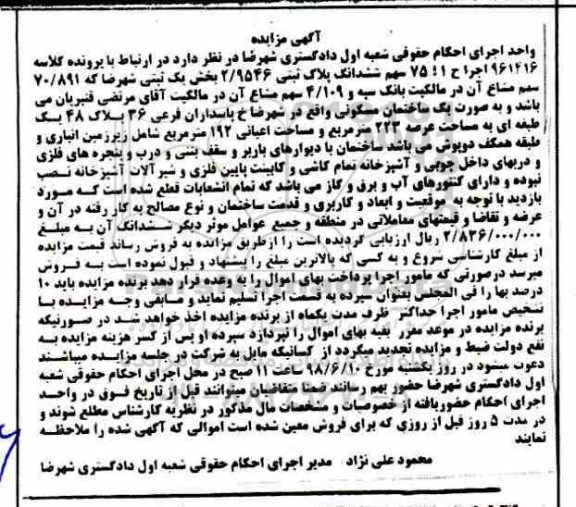 آگهی مزایده
واحد اجرای احکام حقوقی شعبه اول دادگستری شهرضا در نظر دارد در ارتباط با پرونده کلاسه
۹۶۱۴۱۶ اجرا ح ۱؛ ۷۵ سهم ششدانگ پلاک ثبتی ۲/۹۵۴۶ بخش یک ثبتی شهرضا که ۷۰/۸۹۱
سهم مشاع آن در مالکیت بانک سپه و ۴/۱۰۹ سهم مشاع آن در مالکیت آقای مرتضی قنبریان می
باشد و به صورت یک ساختمان مسکونی واقع در شهرضا خ پاسداران فرعی ۳۶ پلاک ۴۸ یک
طبقه ای به مساحت عرصه ۲۲۳ مترمربع و مساحت اعیانی ۱۹۲ مترمربع شامل زیرزمین انباری و
طبقه همکف دوپوش می باشد ساختمان با دیوارهای باربر و سقف بتنی و درب و پنجره های فلزی
و دربهای داخل چوبی و آشپزخانه تمام کاشی و کابینت پایین فلزی و شیر آلات آشپزخانه نصب
نبوده و دارای کنتورهای آب و برق و گاز می باشد که تمام انشعابات قطع شده است که مورد
بازدید با توجه به موقعیت و ابعاد و کاربری و قدمت ساختمان و نوع مصالح به کار رفته در آن و
عرضه و تقاضا و قیمتهای معاملاتی در منطقه و جمیع عوامل موثر دیگر ششدانگ آن به مبلغ
۲/۸۳۶/۰۰۰/۰۰۰ ریال ارزیابی گردیده است را ازطریق مزایده به فروش رساند قیمت مزایده
از مبلغ کارشناسی شروع و به کسی که بالاترین مبلغ را پیشنهاد و قبول نموده است به فروش
میرسد درصورتی که مامور اجرا پرداخت بهای اموال را به وعده قرار دهد برنده مزایده باید ۱۰
درصد بها را فی المجلس بعنوان سپرده به قسمت اجرا تسلیم نماید و مابقی وجه مزایده با
تشخیص مامور اجرا حداکثر ظرف مدت یکماه از برنده مزایده اخذ خواهد شد در صورتیکه
برنده مزایده در موعد مقرر بقیه بهای اموال را نپردازد سپرده او پس از کسر هزینه مزایده به
نفع دولت ضبط و مزایده تجدید میگردد از کسانیکه مایل به شرکت در جلسه مزایده میباشند
دعوت میشود در روز یکشنبه مورخ ۹۸/۶/۱۰ ساعت ۱۱ صبح در محل اجرای احکام حقوقی شعبه
اول دادگستری شهرضا حضور بهم رسانند ضمنا متقاضیان میتوانند قبل از تاریخ فوق در واحد
اجرای احکام حضوریافته از خصوصیات و مشخصات مال مذکور در نظریه کارشناس مطلع شوند و
در مدت ۵ روز قبل از روزی که برای فروش معین شده است اموالی که آگهی شده را ملاحظه
نمایند
محمود علی نژاد مدیر اجرای احکام حقوقی شعبه اول دادگستری شهرضا